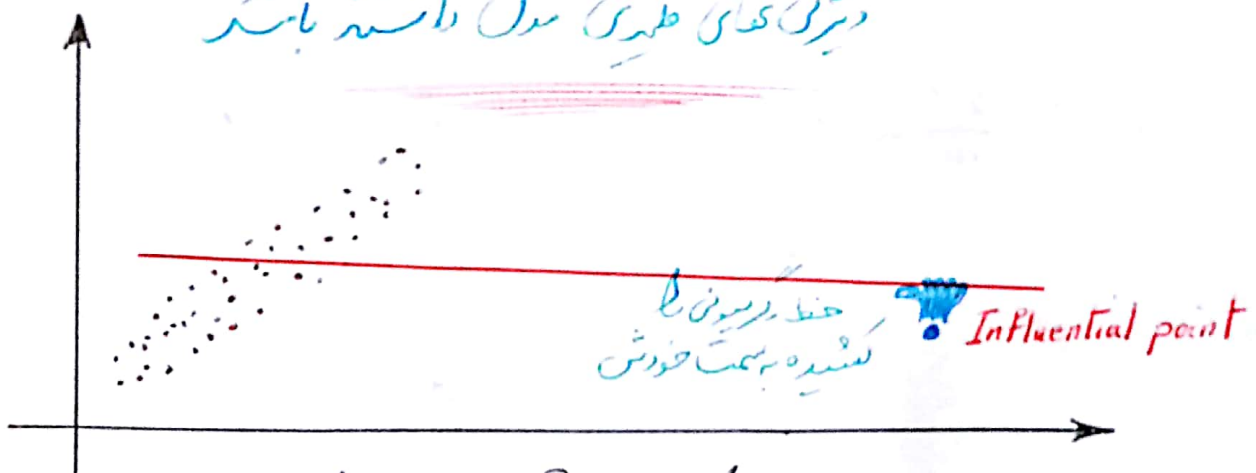 ویژگی های کلیدی مدل داشته باشد
خط رگرسیونی را
کشیده به سمت خودش
Influential point